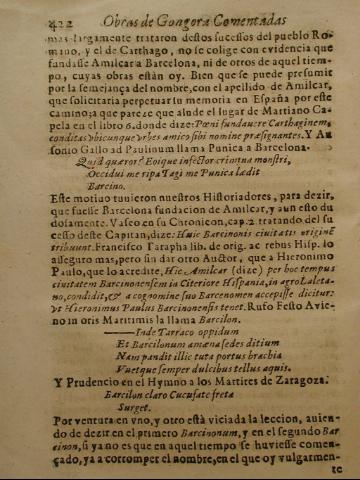 422 Obras de Gongora Comentadas
mas largamente trataron destos sucessos del pueblo Ro-
mano, y el de Carthago, no se colige con evidencia que
fundasse Amilcar a Barcelona, ni de otros de aquel tiem-
po, cuyas obras están oy. Bien que se puede presumir
por la semejança del nombre, con el apellido de Amilcar,
que solicitaria perpetuar tu memoria en España por este
camino; a que pareze que alude el lugar de Martiano Ca-
pela en el libro 6. donde dize: Pœni fundauere Carthaginem,
conditas vbicunque vrbes amico sibi nomine præsignantes. Y Au-
sonio Gallo ad Paulinum llama Punica a Barcelona.
Quid quæror? Eoique infector crimina monstri,
Occidui me ripa Tagi me Punica lædit
Barcino.
Este motiuo tuuieron nuestros Historiadores, para dezir,
que fuesse Barcelona fundacion de Amilcar, y aun esto du
dosamente. Vaseo en su Chronicon, cap. 2 tratando del su
cesso deste Capitan, dize: Huic Barcinonis ciuitatis originē
tribuunt. Francisco Tarapha lib. de orig. ac rebus Hisp. lo
asseguro mas, pero sin dar otro Auctor, que a Hieronimo
Paulo, que lo acredite, Hic Amilcar (dize) per hoc tempus
ciuitatem Barcinonensem in Citeriore Hispania, in agro Laleta-
no, condidit, & a cognomine suo Barcenomen accepisse dicitur:
vt Hieronimus Paulus Barcinonensis tenet. Rufo Festo Avie-
no in oris Maritimis la llama Barcilon.
Inde Tarraco oppidum
Et Barcilonum amæna sedes ditium
Nam pandit illic tuta portus brachia
Vuetque semper dulcibus tellus aquis.
Y Prudencio en el Hymno a los Martires de Zaragoza.
Barcilon claro Cucufate freta
Surget.
Por ventura en vno, y otro està viciada la leccion, auien-
do de dezir en el primero Barcinonum, y en el segundo Bar
cinon, si ya no es que en aquel tiempo se huviesse comen-
çado, ya a corromper el nombre, en el que oy vulgarmen-
te